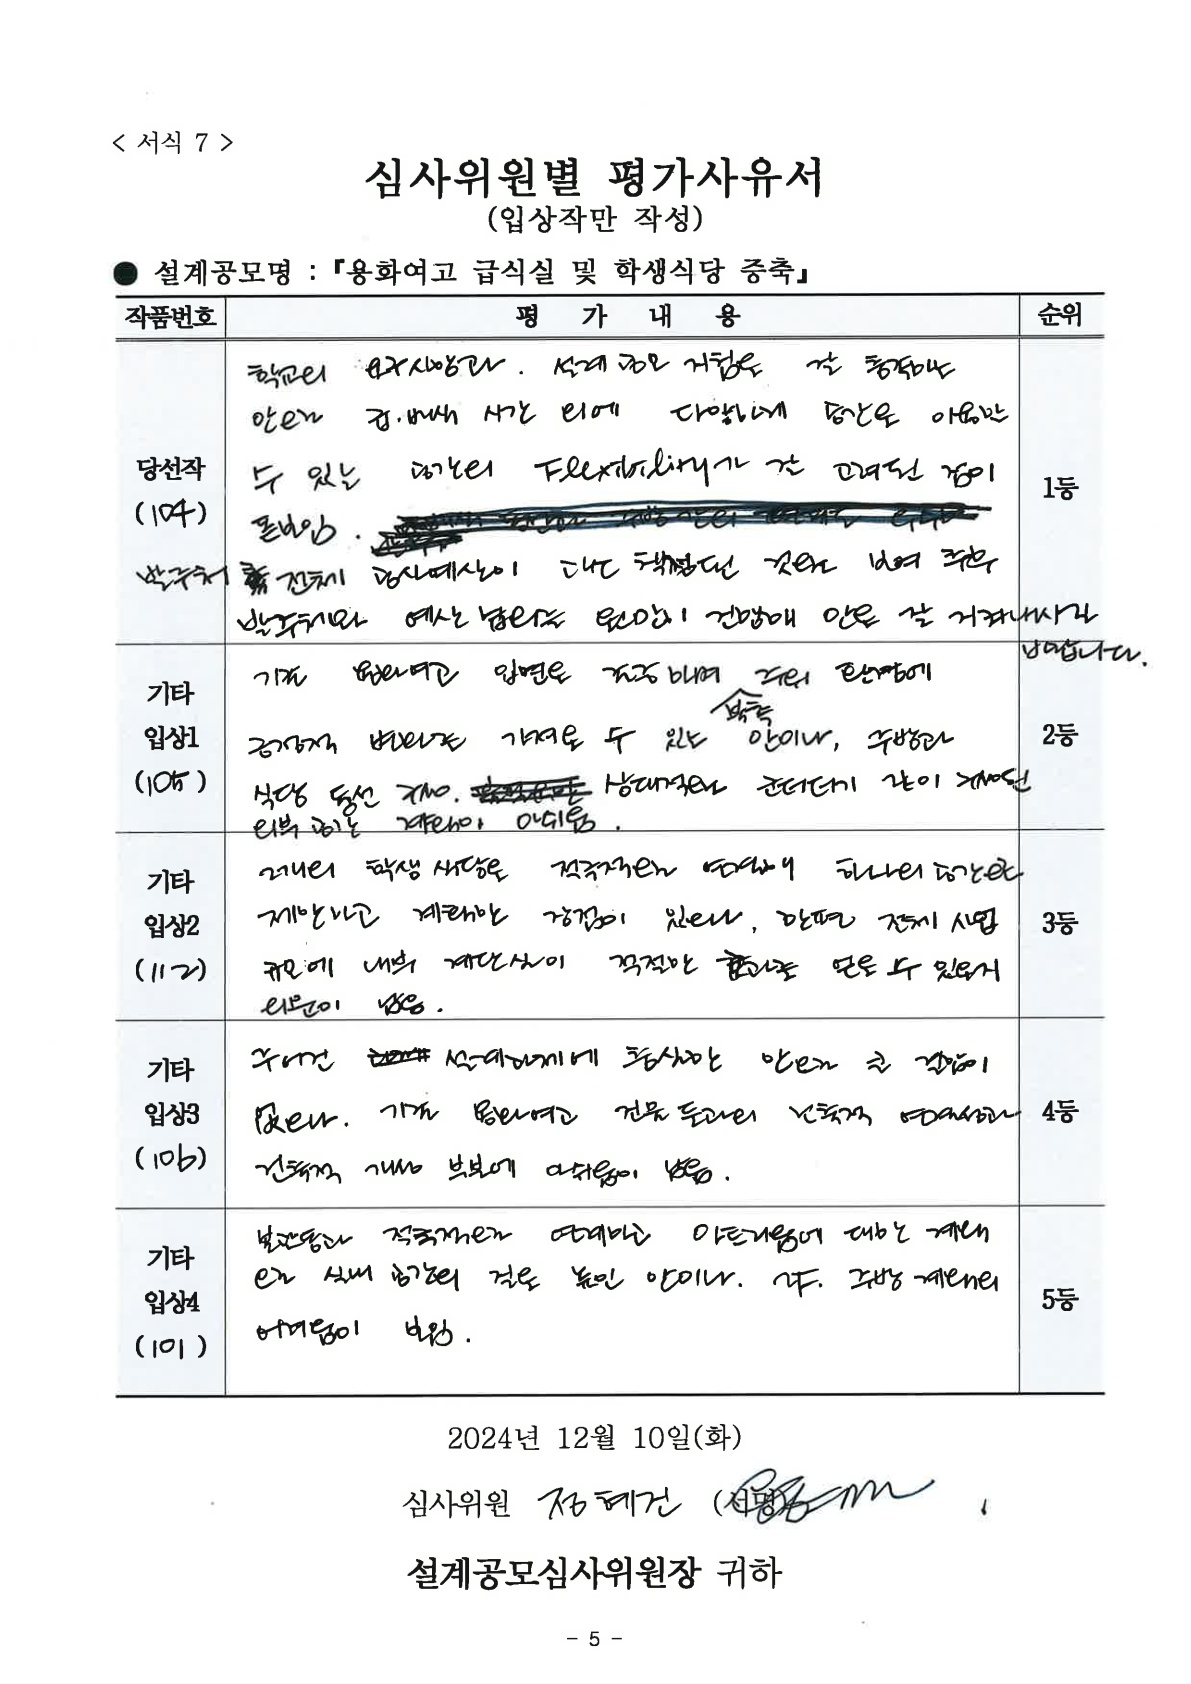 < 서식 7 >
심사위원별 평가사유서
(입상작만 작성)
● 설계공모명 : 『용화여고 급식실 및 학생식당 증축』
작품번호 평 가 내 용 순위
당선작
(104)
학교의 요구사항과. 설계공모 지침을 잘 충족하는
안으로 급.배식 시간 외에 다양하게 공간을 이용할
수 있는 공간의 Flexibility가 잘 고려된 점이
돋보임.
발주처 전체 공사예산이 과도 책정된 것으로 보여 추후
발주처와 예산 범위를 원만히 진행해 안을 잘 지켜내시길
바랍니다.
1등
기타
입상1
(105)
기존 용화여고 입면을 존중하며 주위 환경에
긍정적 변화를 가져올 수 있는 건축 안이나, 주방과
식당 동선 상대적으로 같이
외부 공간 계획이 아쉬움.
2등
기타
입상2
(112)
학생 식당을 적극적으로 연결하여 하나의 공간으로
제안하고 계획한 장점이 있으나, 한편 전체 사업
규모에 내부 계단실이 적절한 효과를 얻을 수 있을지
의문이 남음.
3등
기타
입상3
(106)
주어진 설계과제에 충실한 안으로 큰 결함이
없으나. 기존 용화여고 건물들과의 건축적 연계성과
건축적 개성 부분에 아쉬움이 남음.
4등
기타
입상4
(101)
본관동과 적극적으로 연계하고 아트리움에 대한 계획
으로 실내 공간의 질을 높인 안이나. 주방 계획의
어려움이 보임.
5등
2024년 12월 10일(화)
심사위원 정혜건 (서명)
설계공모심사위원장 귀하
- 5 -